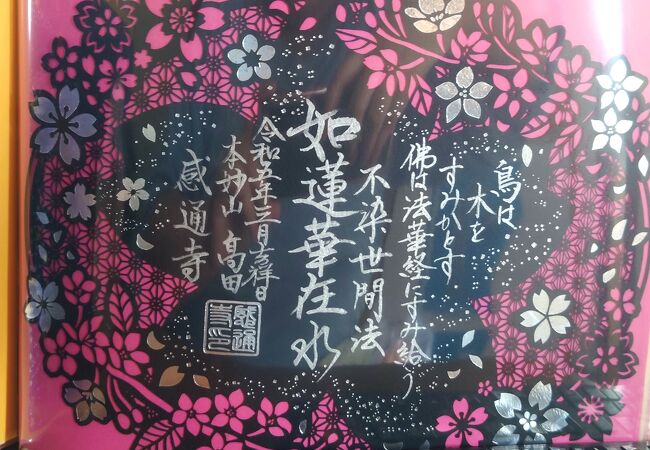 鳥は
木を
すみかとす
佛は法華経にすみ給う
不染世間法
如蓮華在水
令和五年三月吉祥日
本妙山 高田
感通寺
感通
寺印